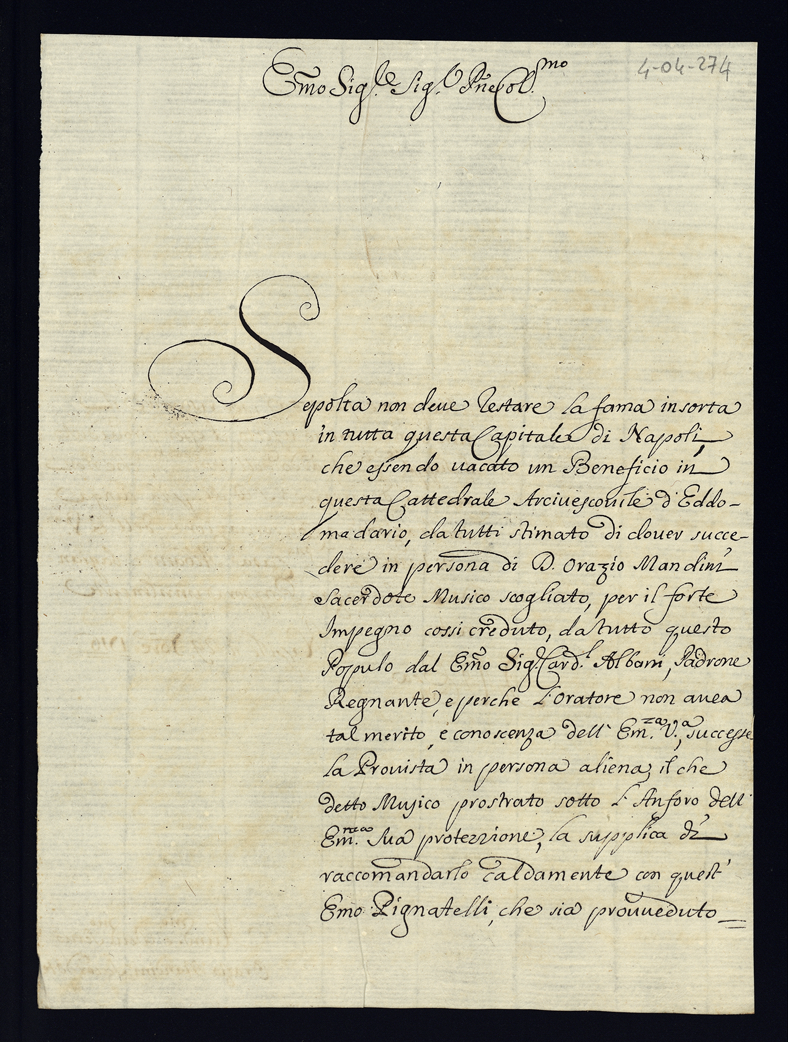 4-04-274
Em̃o Sig.re Sig.r Pñe Col.mo
Sepolta non deue restare la fama insorta
in tutta questa Capitale di Napoli,
che essendo uacato un Beneficio in
questa Cattedrale Arciuescouile d'Eddo-
madario, da tutti stimato di douer succe-
dere in persona di D. Orazio Mandini
Sacerdote Musico scogliato, per il forte
Impegno cossi creduto, da tutto questo
Populo dal Em̃o Sig. Card.l Albani, Padrone
Regnante, e perche l'Oratore non auea
tal merito, e conoscenza dell' Em.za V.a, successe
la Prouista in persona aliena, il che
detto Musico prostrato sotto l'Anforo dell'
Em.za Sua protezzione, la supplica di
raccomandarlo caldamente con quest'
Em̃o Pignatelli, che sia prouueduto